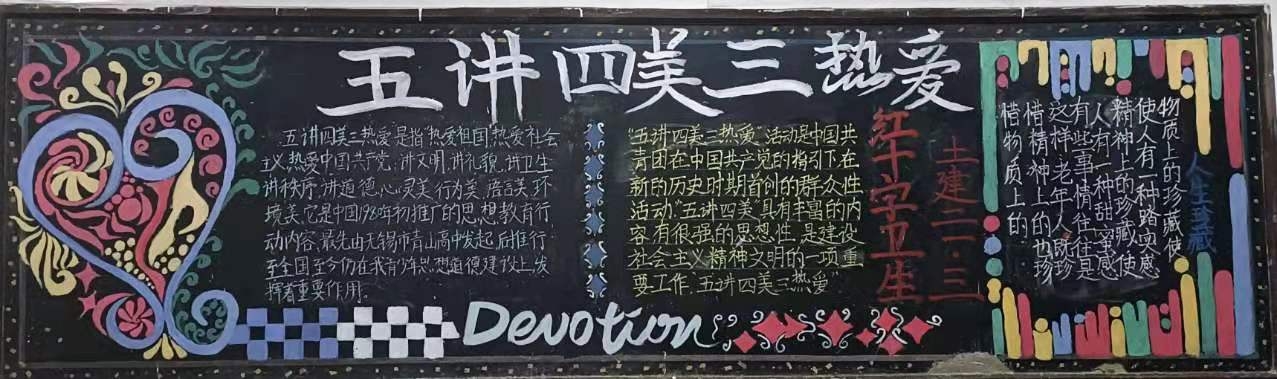 五讲四美三热爱
五讲四美三热爱是指热爱祖国,热爱社会
主义,热爱中国共产党,讲文明,讲礼貌,讲卫生
讲秩序,讲道德,心灵美,行为美,语言美,环
境美,它是中国1980年初推广的思想教育行
动内容,最先由无锡市青山高中发起,后推行
至全国至今仍在我青少年思想道德建设上发
挥着重要作用.
"五讲四美三热爱"活动是中国共
青团在中国共产党的指引下在
新的历史时期首创的群众性
活动."五讲四美"具有丰富的内
容,有很强的思想性,是建设
社会主义精神文明的一项重
要工作,五讲四美三热爱"
红十字卫生
土建二·三
Devotion
人生珍藏
物质上的珍藏使
使人有一种踏实感
精神上的珍藏使
人有一种甜蜜感
有些事情往往是
这样老年人既珍
惜精神上的也珍
惜物质上的